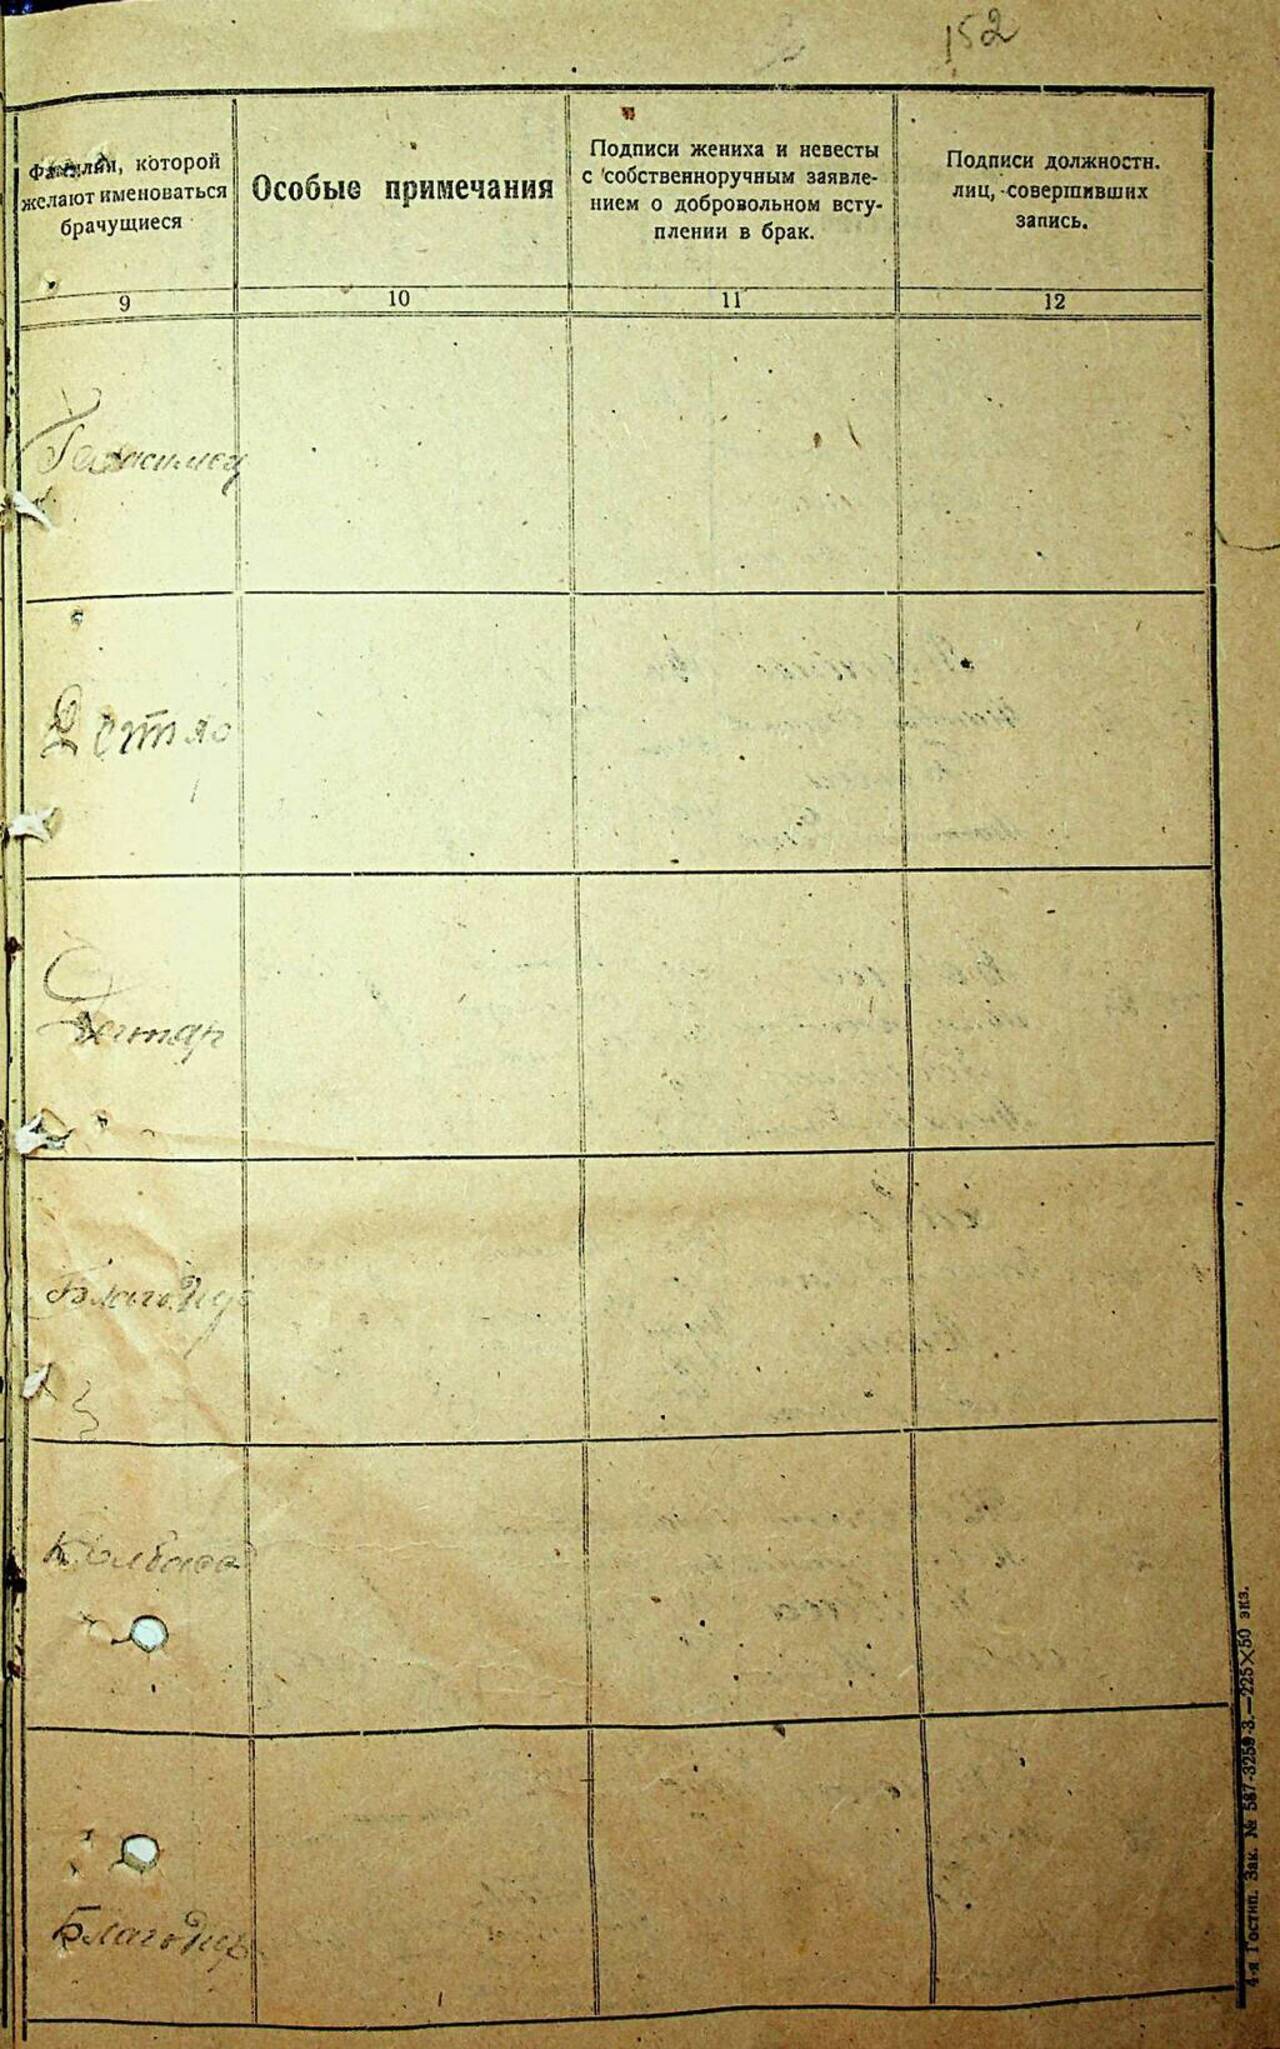 152
Фамилия, которой
желают именоваться
брачущиеся
Особые примечания
Подписи жениха и невесты
с собственноручным заявле-
нием о добровольном всту-
плении в брак.
Подписи должностн.
лиц, совершивших
запись.
9
10
11
12
Дегтяр
Благодир
Колбаса
Благодир
4-я Гостип. Зак. № 587-3259-3.—225×50 экз.